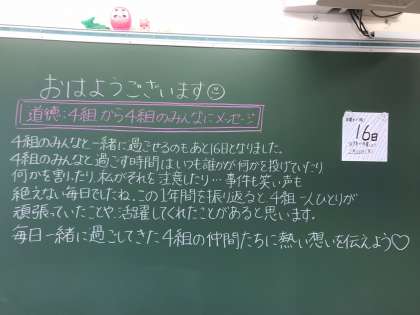 おはようございます☺
道徳：4組から4組のみんなにメッセージ
4組のみんなと一緒に過ごせるのもあと16日となりました。
4組のみんなと過ごす時間はいつも誰かが何かを投げていたり
何かを割ったり、私がそれを注意したり…事件も笑い声も
絶えない毎日でしたね。この1年間を振り返ると4組一人ひとりが
頑張っていたことや、活躍してくれたことがあると思います。
毎日一緒に過ごしてきた4組の仲間たちに熱い想いを伝えよう♡
16日